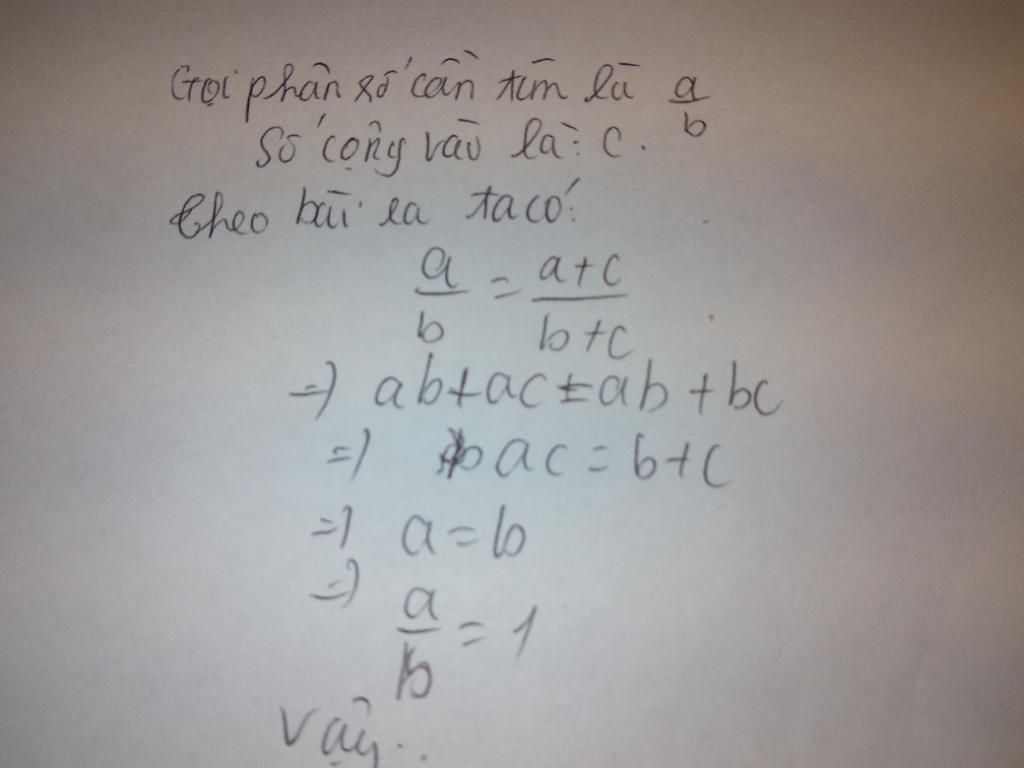 Gọi phân số cần tìm là a/b
Số cộng vào là: c.
Theo bài ra ta có:
a/b = a+c/b+c
=) ab+ac = ab+bc
=) ac = b+c
=) a = b
=) a/b = 1
Vậy..